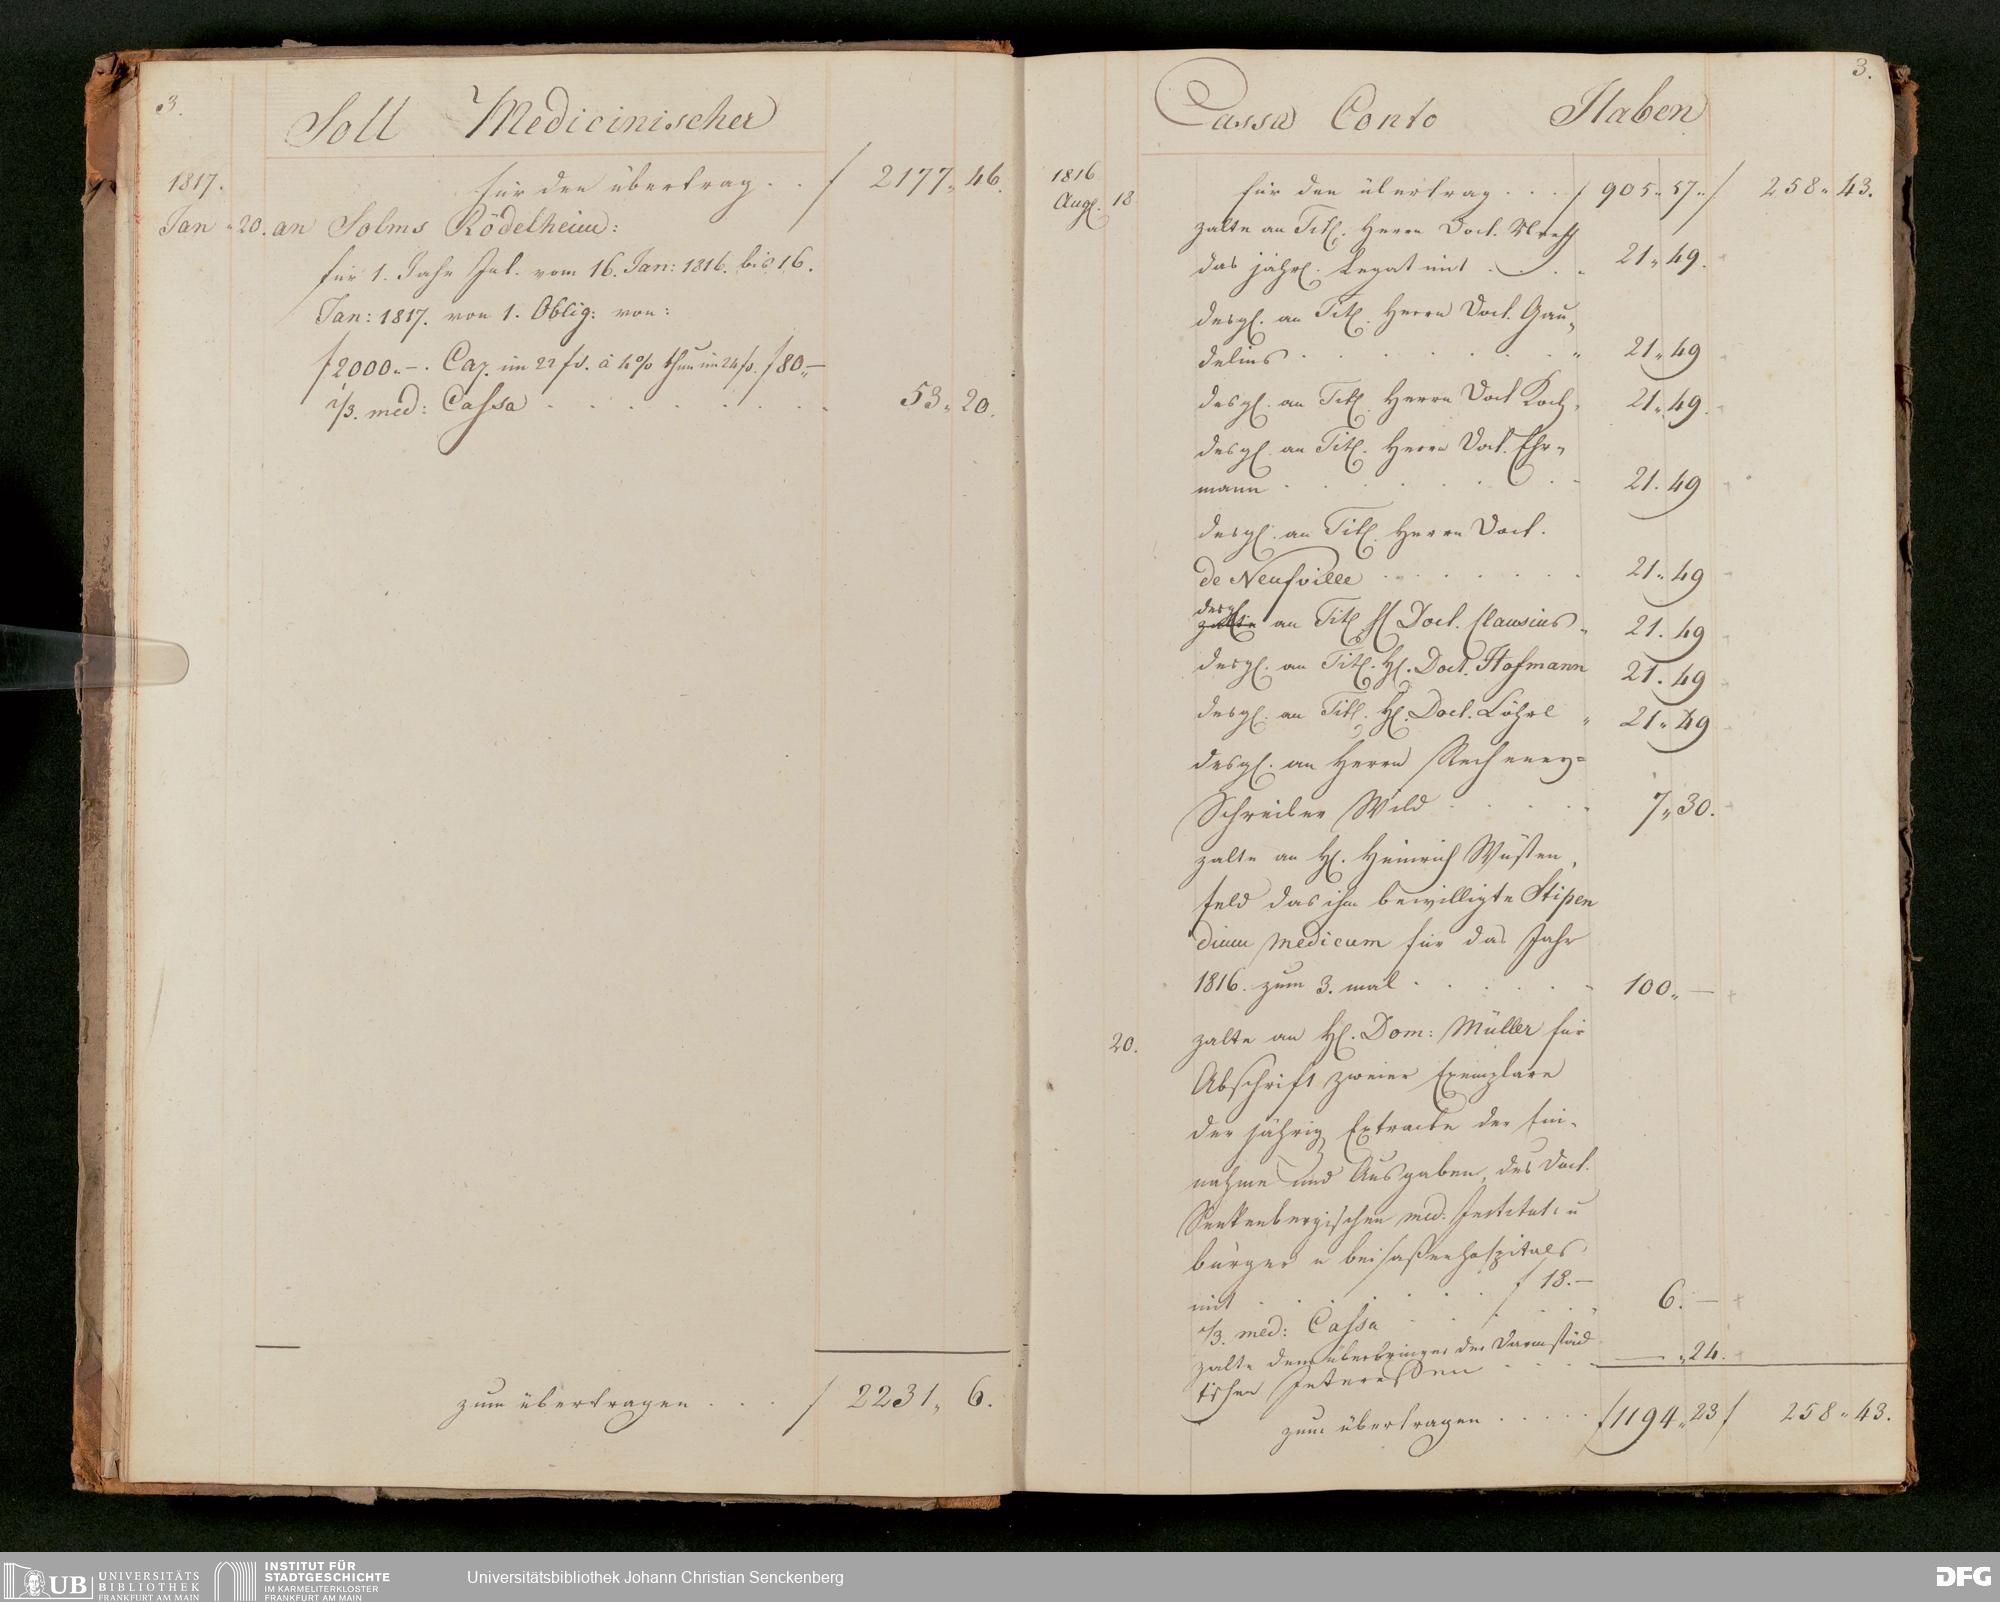 3.
Soll Medicinischer
1817. für den übertrag . . f 2177 „ 46.
Jan „ 20. an Solms Rödelheim:
für 1. Jahr Int. vom 16. Jan: 1816. bis 16.
Jan: 1817. von 1. Oblig: von:
f 2000.–. Cap. im 22 f. à 4% thun im 24 f. f 80„–
1/3. med: Cassa . . . . . . . 53 „ 20.
zum übertragen . . . f 2231 „ 6.
3.
Cassa Conto Haben
1816
Aug. 18 für den übertrag . . . f 905 „ 57 „ f 258 „ 43.
zalte an Tit. Herrn Doct.
das jährl. Legat mit . . . . 21 „ 49.
desgl. an Tit. Herrn Doct. Gau„
delius . . . . . . . „ 21 „ 49
desgl. an Tit. Herrn Doct Koch, 21 „ 49.
desgl. an Tit. Herrn Doct. Ehr„
mann . . . . . . . 21. 49
desgl. an Tit. Herrn Doct.
de Neufville . . . . . . 21 „ 49
desgl.
zalte an Tit. H. Doct. Clausius „ 21. 49
desgl. an Tit. H. Doct. Hofmann 21. 49
desgl. an Tit. H. Doct. Löhrl „ 21 „ 49
desgl. an Herrn Recheney=
Schreiber Wild . . . . . 7 „ 30.
zalte an H. Heinrich Wüsten„
feld das ihm bewilligte Stipen
dium medicum für das Jahr
1816. zum 3. mal . . . . . 100 „ —
20. zalte an H. Dom: Müller für
Abschrift zweier Exemplare
der jährig Extracte der Ein„
nahme und Ausgaben, des Doct.
Senkenbergischen med. Institut: u
bürger u beisaßenhospitals,
mit . . . . . . f 18.–
1/3. med: Cassa . . . . 6. –
zalte dem überbringer der Darmstäd
tischen Interessen . . . . — „ 24.
zum übertragen . . . . . f 1194 „ 23 f 258 „ 43.
UB UNIVERSITÄTS
BIBLIOTHEK
FRANKFURT AM MAIN
INSTITUT FÜR
STADTGESCHICHTE
IM KARMELITERKLOSTER
FRANKFURT AM MAIN
Universitätsbibliothek Johann Christian Senckenberg
DFG